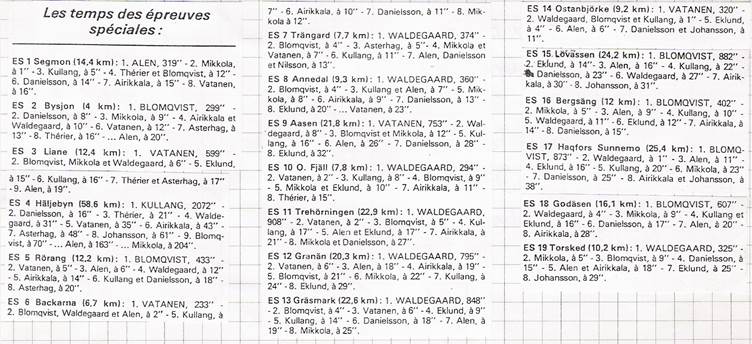 Les temps des épreuves
spéciales :
ES 1 Segmon (14,4 km) : 1. ALEN, 319'' - 2. Mikkola,
à 1'' - 3. Kullang, à 5'' - 4. Thérier et Blomqvist, à 12'' -
6. Danielsson, à 14'' - 7. Airikkala, à 15'' - 8. Vatanen,
à 16''.
ES 2 Bysjon (4 km) : 1. BLOMQVIST, 299'' -
2. Danielsson, à 8'' - 3. Mikkola, à 9'' - 4. Airikkala et
Waldegaard, à 10'' - 6. Vatanen, à 12'' - 7. Asterhag, à
13'' - 8. Thérier, à 16'' ... Alen, à 20''.
ES 3 Liane (12,4 km) : 1. VATANEN, 599'' -
2. Blomqvist, Mikkola et Waldegaard, à 6'' - 5. Eklund,
à 15'' - 6. Kullang, à 16'' - 7. Thérier et Asterhag, à 17''
- 9. Alen, à 19''.
ES 4 Häljebyn (58.6 km) : 1. KULLANG, 2072'' -
2. Danielsson, à 16'' - 3. Thérier, à 21'' - 4. Walde-
gaard, à 31'' - 5. Vatanen, à 35'' - 6. Airikkala, à 43'' -
7. Asterhag, à 48'' - 8. Johansson, à 61'' - 9. Blomq-
vist, à 70'' - ... Alen, à 163'' - ... Mikkola, à 204''.
ES 5 Rörang (12,2 km) : 1. BLOMQVIST, 433'' -
2. Vatanen, à 5'' - 3. Alen, à 6'' - 4. Waldegaard, à 12''
- 5. Airikkala, à 14'' - 6. Kullang et Danielsson, à 18'' -
8. Asterhag, à 20''.
ES 6 Backarna (6,7 km) : 1. VATANEN, 233'' -
2. Blomqvist, Waldegaard et Alen, à 2'' - 5. Kullang, à
7'' - 6. Airikkala, à 10'' - 7. Danielsson, à 11'' - 8. Mik-
kola à 12''.
ES 7 Trängard (7,7 km) : 1. WALDEGAARD, 374''
- 2. Blomqvist, à 4'' - 3. Asterhag, à 5'' - 4. Mikkola et
Vatanen, à 7'' - 6. Kullang, à 11'' - 7. Alen, Danielsson
et Nilsson, à 13''.
ES 8 Annedal (9,3 km) : 1. WALDEGAARD, 360'' -
2. Blomqvist, à 4'' - 3. Kullang et Alen, à 7'' - 5. Mik-
kola, à 8'' - 6. Airikkala, à 9'' - 7. Danielsson, à 13'' -
8. Eklund, à 20'' - ... Vatanen, à 23''.
ES 9 Aasen (21,8 km) : 1. VATANEN, 753'' - 2. Wal-
degaard, à 8'' - 3. Blomqvist et Mikkola, à 12'' - 5. Kul-
lang, à 16'' - 6. Alen, à 26'' - 7. Danielsson, à 28'' -
8. Eklund, à 32''.
ES 10 O. Fjäll (7,8 km) : 1. WALDEGAARD, 294'' -
2. Vatanen, à 2'' - 3. Kullang, à 8'' - 4. Blomqvist, à 9''
- 5. Mikkola et Eklund, à 10'' - 7. Airikkala, à 11'' -
8. Thérier, à 15''.
ES 11 Trehörningen (22,9 km) : 1. WALDEGAARD,
908'' - 2. Vatanen, à 2'' - 3. Blomqvist, à 5'' - 4. Kul-
lang, à 17'' - 5. Alen et Eklund, à 17'' - 7. Airikkala, à
21'' - 8. Mikkola et Danielsson, à 27''.
ES 12 Granän (20,3 km) : 1. WALDEGAARD, 795'' -
2. Vatanen, à 6'' - 3. Alen, à 18'' - 4. Airikkala, à 19'' -
5. Blomqvist, à 21'' - 6. Mikkola, à 22'' - 7. Kullang, à
24'' - 8. Eklund, à 29''.
ES 13 Gräsmark (22,6 km) : 1. WALDEGAARD, 848''
- 2. Blomqvist, à 4'' - 3. Vatanen, à 6'' - 4. Eklund, à 9''
- 5. Kullang, à 14'' - 6. Danielsson, à 18'' - 7. Alen, à
19'' - 8. Mikkola, à 25''.
ES 14 Ostanbjörke (9,2 km) : 1. VATANEN, 320'' -
2. Waldegaard, Blomqvist et Kullang, à 1'' - 5. Eklund,
à 4'' - 6. Alen, à 6'' - 7. Danielsson et Johansson, à
11''.
ES 15. Lövässen (24,2 km) : 1. BLOMQVIST, 882'' -
2. Eklund, à 14'' - 3. Alen, à 16'' - 4. Kullang, à 22'' -
Danielsson, à 23'' - 6. Waldegaard, à 27'' - 7. Airik-
kala, à 30'' - 8. Johansson, à 31''.
ES 16 Bergsäng (12 km) : 1. BLOMQVIST, 402'' -
2. Mikkola, à 5'' - 3. Alen, à 9'' - 4. Kullang, à 10'' -
5. Waldegaard, à 11'' - 6. Eklund, à 12'' - 7. Airikkala, à
14'' - 8. Danielsson, à 15''.
ES 17 Hagfors Sunnemo (25,4 km) : 1. BLOMQ-
VIST, 873'' - 2. Waldegaard, à 1'' - 3. Alen, à 11'' -
4. Eklund, à 16'' - 5. Kullang, à 20'' - 6. Mikkola, à 23''
- 7. Danielsson, à 25'' - 8. Airikkala et Johansson, à
38''.
ES 18 Godäsen (16,1 km) : 1. BLOMQVIST, 607'' -
2. Waldegaard, à 4'' - 3. Mikkola, à 9'' - 4. Kullang et
Eklund, à 16'' - 6. Danielsson, à 17'' - 7. Alen, à 20'' -
8. Airikkala, à 28''.
ES 19 Torsked (10,2 km) : 1. WALDEGAARD, 325'' -
2. Mikkola, à 5'' - 3. Blomqvist, à 9'' - 4. Danielsson, à
15'' - 5. Alen et Airikkala, à 18'' - 7. Eklund, à 25'' -
8. Johansson, à 29''.